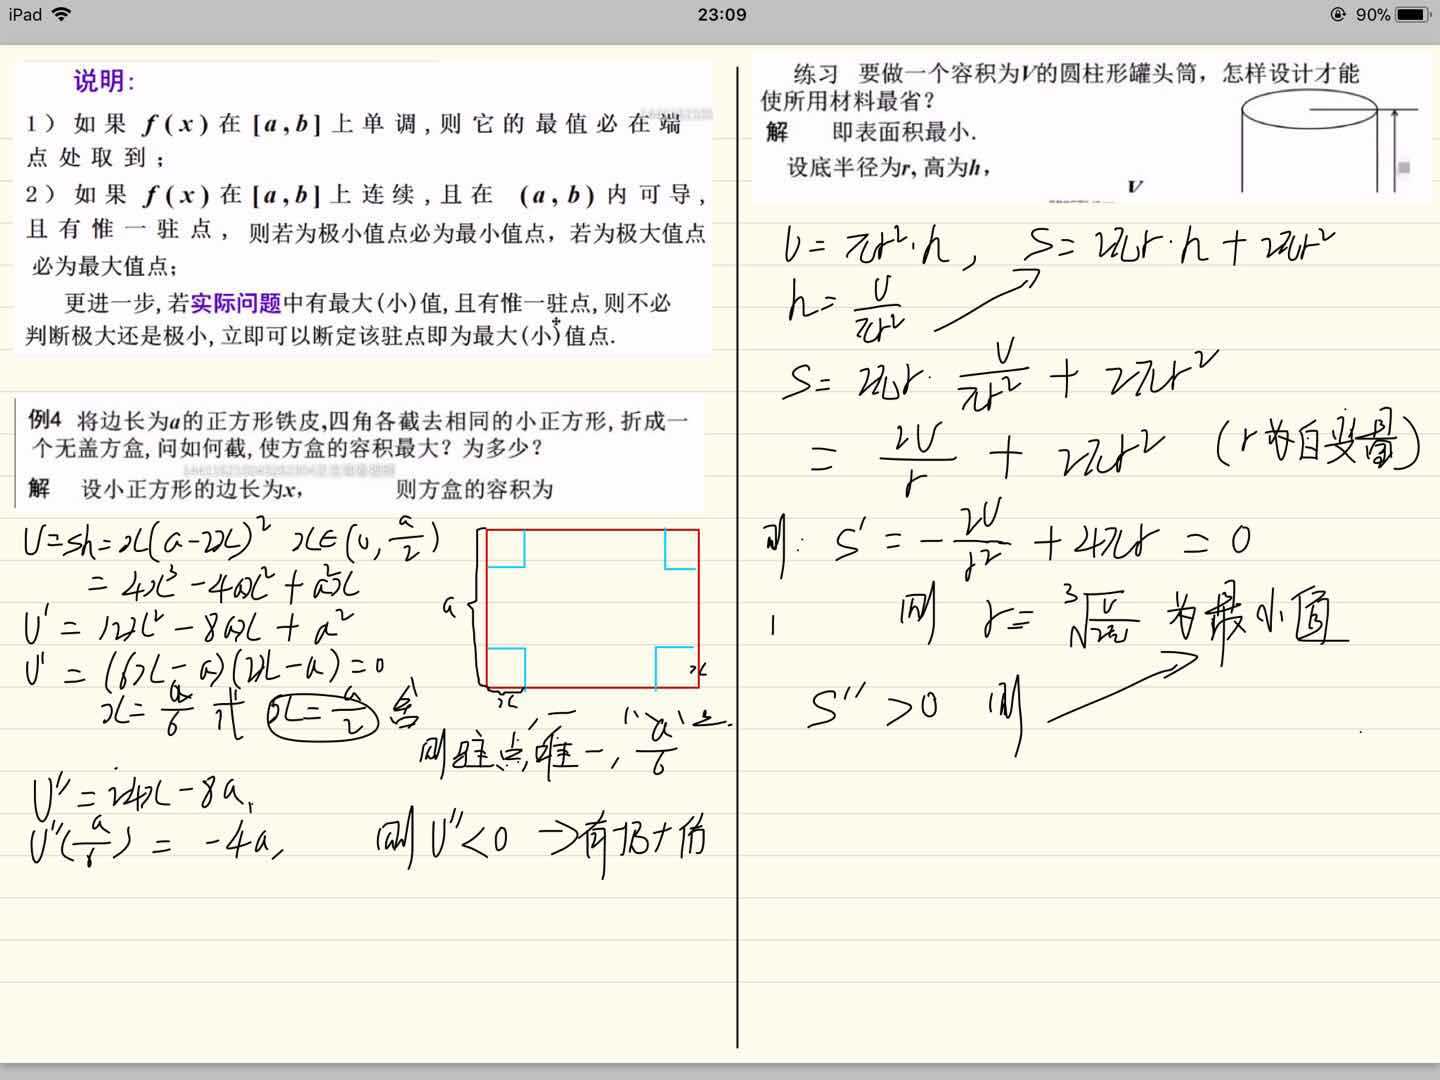 iPad
23:09
90%
说明:
1）如果 f(x) 在 [a,b] 上单调,则它的最值必在端
点处取到；
2）如果 f(x) 在 [a,b] 上连续,且在 (a,b) 内可导,
且有惟一驻点, 则若为极小值点必为最小值点，若为极大值点
必为最大值点；
更进一步,若实际问题中有最大(小)值,且有惟一驻点,则不必
判断极大还是极小,立即可以断定该驻点即为最大(小)值点.
例4 将边长为a的正方形铁皮,四角各截去相同的小正方形,折成一
个无盖方盒,问如何截,使方盒的容积最大？为多少？
解 设小正方形的边长为x， 则方盒的容积为
V=sh=x(a-2x)² x∈(0, a/2)
=4x³-4ax²+a²x
V'=12x²-8ax+a²
V'=(6x-a)(2x-a)=0
x=a/6 或 x=a/2 舍
a
x
x
则驻点唯一, a/6
V''=24x-8a,
V''(a/6)=-4a, 则V''<0 →有极大值
练习 要做一个容积为V的圆柱形罐头筒，怎样设计才能
使所用材料最省？
解 即表面积最小.
设底半径为r,高为h，
V
V=πr²·h, S=2πr·h+2πr²
h=V/πr²
S=2πr·V/πr²+2πr²
=2V/r+2πr² (r为自变量)
则: S'=-2V/r²+4πr=0
则 r=³√(V/2π) 为最小值
S''>0 则